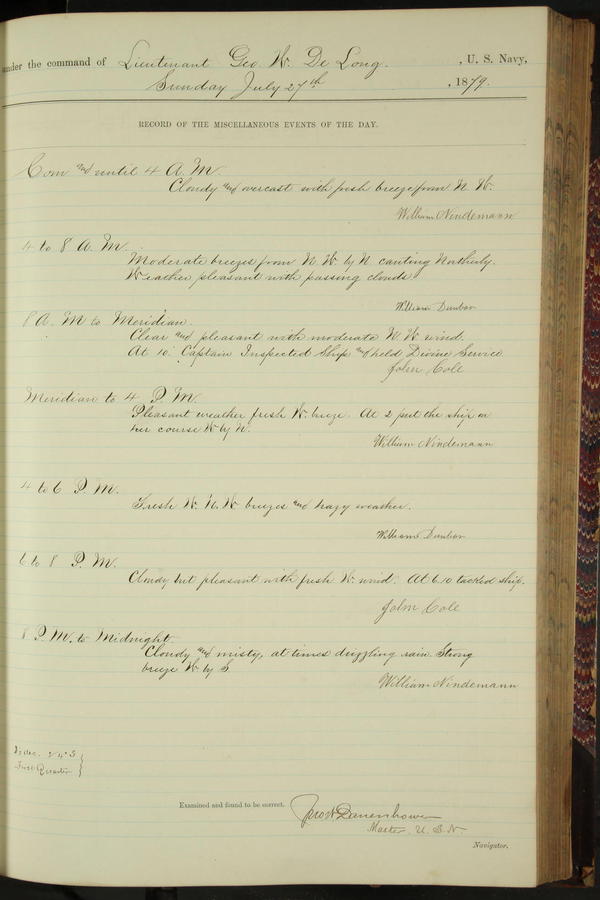 under the command of Lieutenant Geo. W. De Long. , U. S. Navy,
Sunday July 27th , 1879.
RECORD OF THE MISCELLANEOUS EVENTS OF THE DAY.
Com and until 4 A. M.
Cloudy and overcast with fresh breeze from N. W.
William Nindemann
4 to 8 A. M.
Moderate breezes from N. W. by N. canting Northerly.
Weather pleasant with passing clouds
William Dunbar
8 A. M to Meridian.
Clear and pleasant with moderate N. W. wind.
At 10. Captain Inspected Ship and held Divine Service
John Cole
Meridian to 4 P. M
Pleasant weather fresh W. breeze. At 2 put the ship on
her course W by N.
William Nindemann
4 to 6 P. M.
Fresh W. N. W breezes and hazy weather.
William Dunbar
6 to 8 P. M.
Cloudy but pleasant with fresh W. wind. At 6.10 tacked ship.
John Cole
8 P. M. to Midnight.
Cloudy and misty, at times drizzling rain. Strong
breeze W by S.
William Nindemann
First Quarter
Examined and found to be correct. Jno W Danenhower
Master, U. S. N.
Navigator.